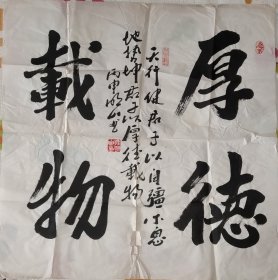 厚德
載物
天行健君子以自彊不息
地势坤君子以厚德載物
丙申